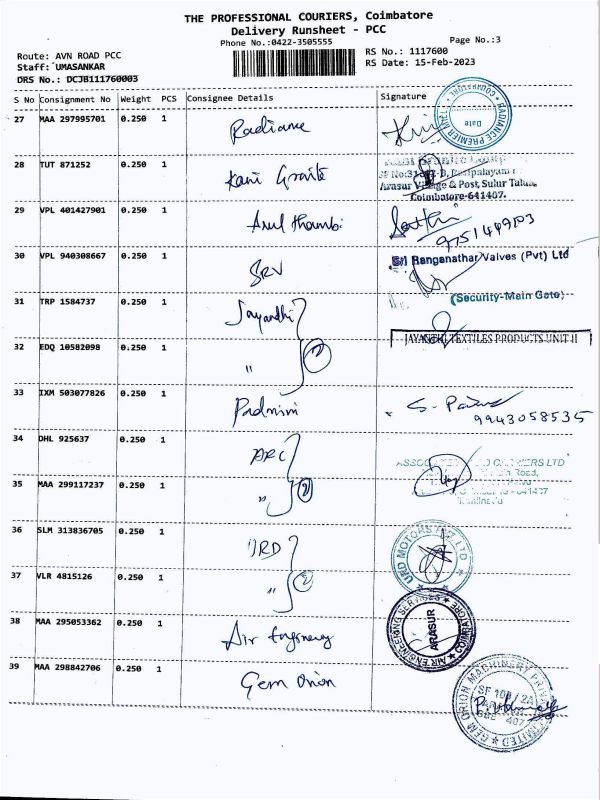 THE PROFESSIONAL COURIERS, Coimbatore
Delivery Runsheet - PCC
Phone No.:0422-3505555
Page No.:3
Route: AVN ROAD PCC
Staff: UMASANKAR
DRS No.: DCJB111760003
RS No.: 1117600
RS Date: 15-Feb-2023
S No Consignment No Weight PCS Consignee Details Signature
27 MAA 297995701 0.250 1 Radiance
RADIANCE PREMIER COIMBATORE Date
28 TUT 871252 0.250 1 Kani Granite
Arasur Village & Post, Sulur Taluk
Coimbatore-641407.
29 VPL 401427901 0.250 1 Arul thambi
9751449103
30 VPL 940308667 0.250 1 SRV
Sri Ranganathar Valves (Pvt) Ltd
(Security-Main Gate)
31 TRP 1584737 0.250 1 Jayandhi
JAYANTHI TEXTILES PRODUCTS UNIT II
32 EDQ 10582098 0.250 1 " 2
33 IXM 503077826 0.250 1 Padmini
9943058535
34 DHL 925637 0.250 1 ARC
35 MAA 299117237 0.250 1 " 2
36 SLM 313836705 0.250 1 URD
URD MOTORS PVT LTD
37 VLR 4815126 0.250 1 " 2
38 MAA 295053362 0.250 1 Air Engineering
AIR ENGINEERING SERVICES COIMBATORE ARASUR
39 MAA 298842706 0.250 1 Gem Orion
GEM ORION MACHINERY PRIVATE LIMITED